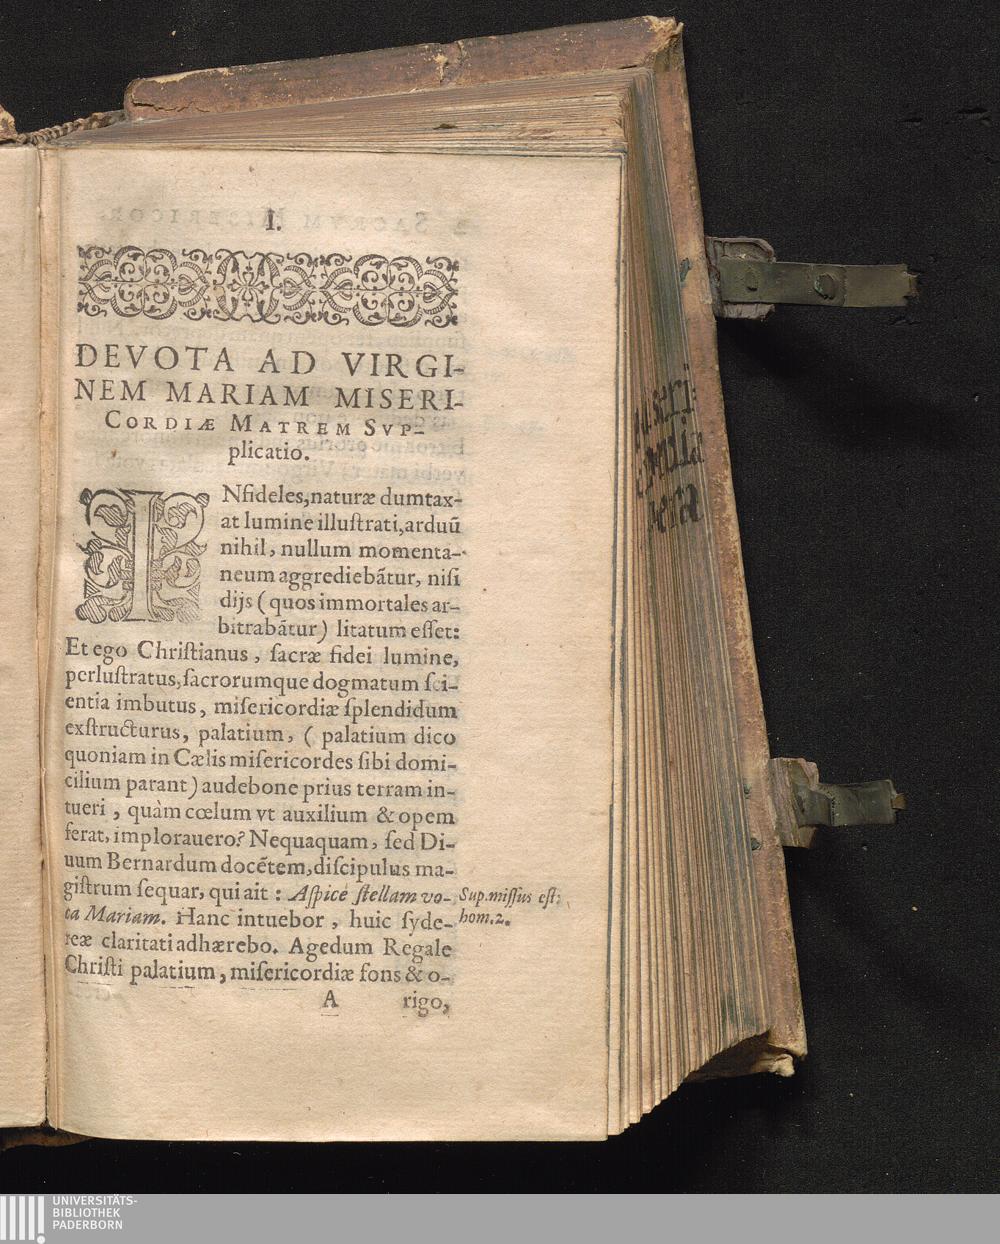 I.
DEVOTA AD VIRGI-
NEM MARIAM MISERI-
CORDIÆ MATREM SVP-
plicatio.
INfideles, naturæ dumtax-
at lumine illuſtrati, arduū
nihil, nullum momenta-
neum aggrediebātur, niſi
dijs (quos immortales ar-
bitrabātur) litatum eſſet:
Et ego Chriſtianus, ſacræ fidei lumine,
perluſtratus, ſacrorumque dogmatum ſci-
entia imbutus, miſericordiæ ſplendidum
exſtructurus, palatium, (palatium dico
quoniam in Cælis miſericordes ſibi domi-
cilium parant) audebone prius terram in-
tueri, quàm cœlum vt auxilium & opem
ferat, implorauero? Nequaquam, ſed Di-
uum Bernardum docētem, diſcipulus ma-
giſtrum ſequar, qui ait: Aſpice ſtellam vo-
ca Mariam. Hanc intuebor, huic ſyde-
reæ claritati adhærebo. Agedum Regale
Chriſti palatium, miſericordiæ fons & o-
A rigo,
Sup. miſſus eſt:
hom. 2.
UNIVERSITÄTS-
BIBLIOTHEK
PADERBORN